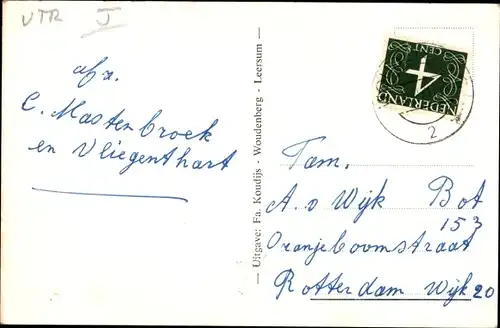 UTR J
afz.
C. Mastenbroek
en Vliegenthart
— Uitgave: Fa. Koudijs - Woudenberg - Leersum —
NEDERLAND
4
CENT
2
Fam.
A. v Wijk Bot
153
Oranjeboomstraat
Rotterdam Wijk 20